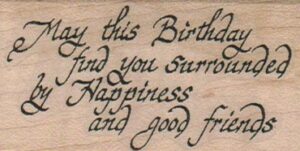 May this Birthday
find you surrounded
by Happiness
and good friends